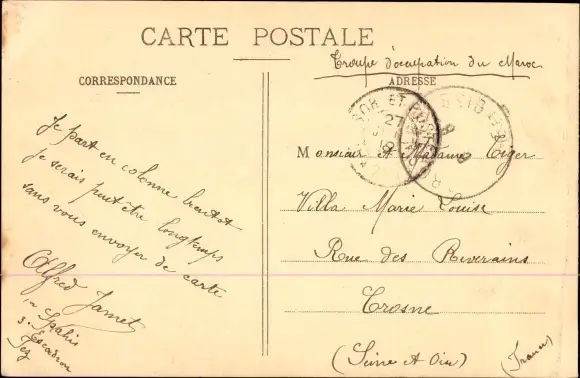 CARTE POSTALE
Troupe d'occupation du Maroc
CORRESPONDANCE
ADRESSE
Je part en colonne bientot
Je serais peut être longtemps
sans vous envoyer de carte
Alfred Jamet
Spahis
3e Escadron
Fez
Monsieur et Madame Tiger
Villa Marie Louise
Rue des Riverains
Crosne
(Seine et Oise)
(France)